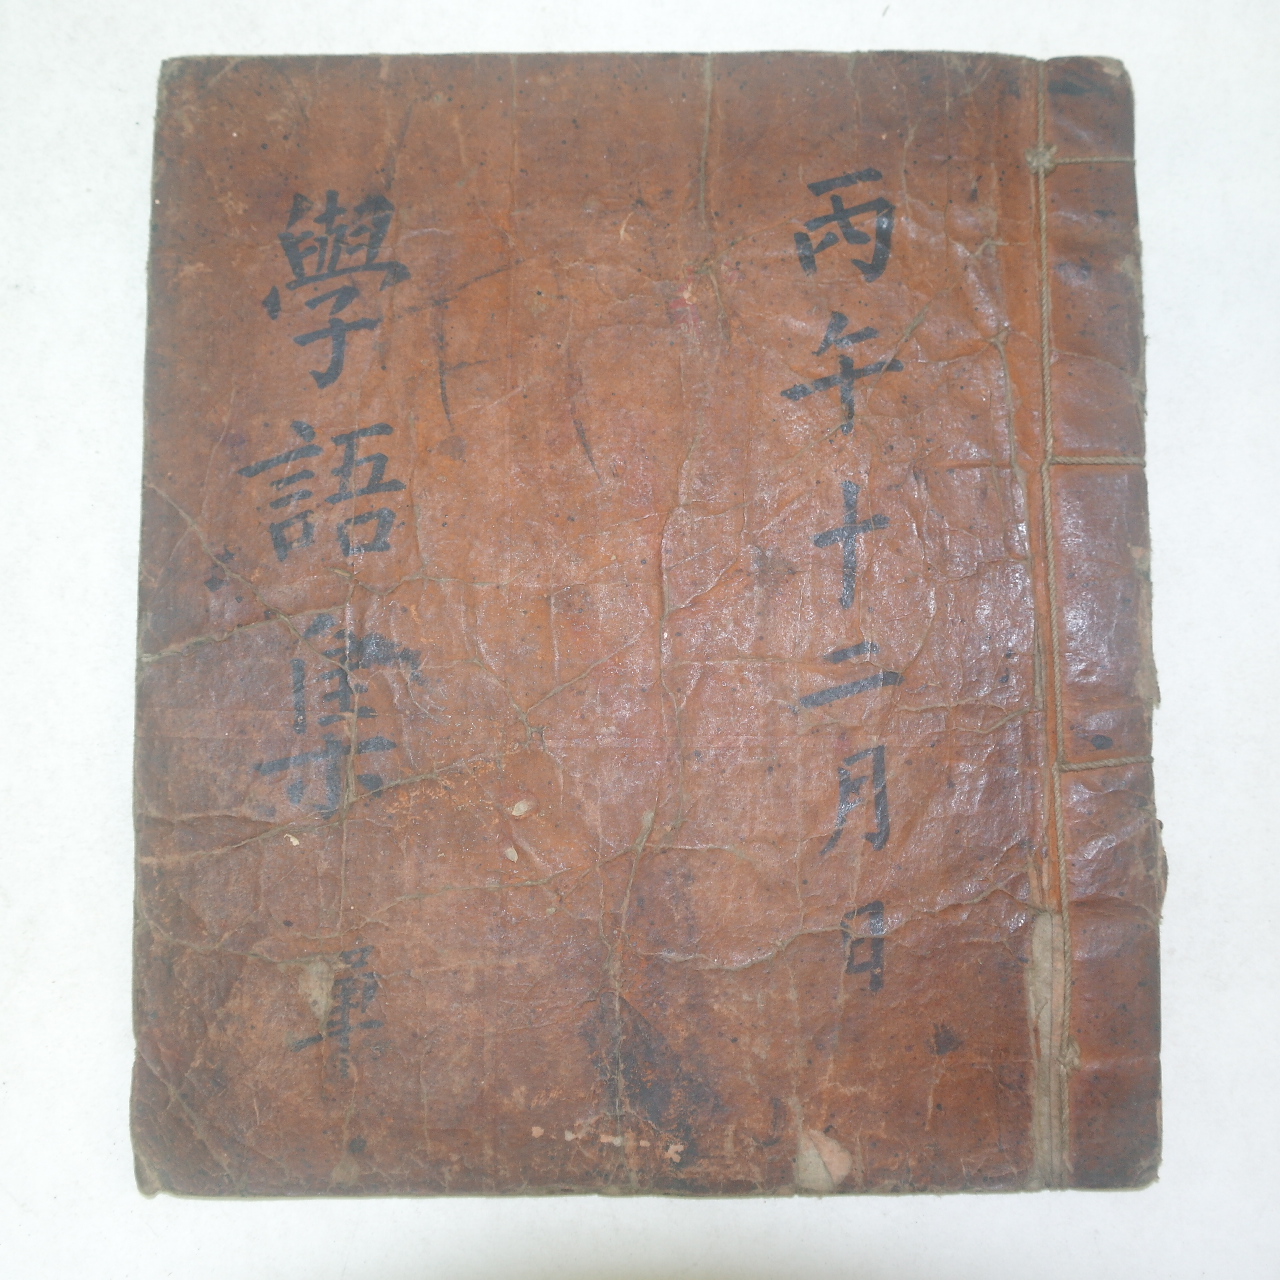 丙午十二月日
學語集 單